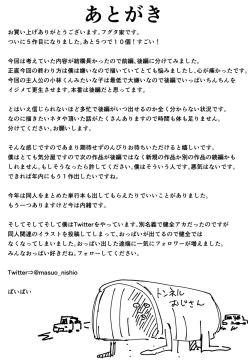 あとがき
お買い上げありがとうございます。フグタ家です。
ついに5作目になりました。あと5つで10個！すごい！
今回は考えていた内容が結構長かったので前編、後編に分けてみました。
正直今回の終わり方は僕は嫌いなので描いていてとても悩みましたし、心が痛かったです。
今回の主人公の小林くんみたいな子は最低で大嫌いなので後編でいっぱいちんちんを
イジメて更生させます。本書は後編だと思ってます。
とはいえ信じられないほど多忙で後編がいつ出せるのか全く分からない状況です。
なのに描きたいネタや頂いた話がたくさんありますので時間も体も足りません。
分けてください、お願いします。
そんな感じですのであまり期待せずのんびりお待ちいただけると嬉しいです。
僕はとても気分屋ですので次の作品が後編ではなく新規の作品か別の作品の続編かも
しれません。もしそうなったら許してください。僕はそういう人です。悪気はないです。
できれば年内にもう1作出したいですね。
今年は同人をまとめた単行本も出してもらえたりでいいことがありました。
もう一つありますけど今は内緒です。
そしてそしてそして僕はTwitterをやっています。別名義で健全アカだったのですが
同人関連のイラストを投稿してしまって、おっぱいが出てるので健全では
なくなってしまいました。おっぱい出した途端に一気にフォロワーが増えました。
みんなおっぱい好きだね。フォローしてください。
Twitter⇒@masuo_nishio
ばいばい
トンネル
おじさん